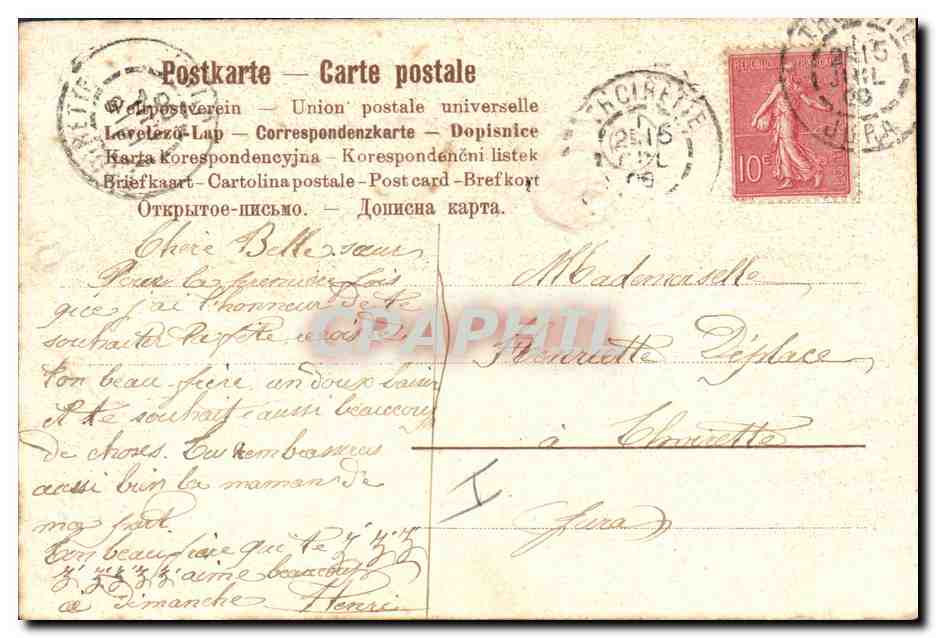 Postkarte — Carte postale
Weltpostverein — Union postale universelle
Levelező-Lap — Correspondenzkarte — Dopisnice
Karta korespondencyjna — Korespondenční listek
Briefkaart — Cartolina postale — Post card — Brefkort
Открытое-письмо. — Дописна карта.
THOIRETTE
2E 15
JUIL
JURA
10c
Chère Belle sœur
Pour la première fois
que j'ai l'honneur de te
souhaiter ta fête reçois de
ton beau frère un doux baiser
et te souhaite aussi beaucoup
de choses. Tu embrasseras
aussi bien la maman de
ma part.
Ton beau frère qui te
aime beaucoup
à dimanche Henri
Mademoiselle
Henriette Déplace
à Thoirette
Jura
CPAPHIL